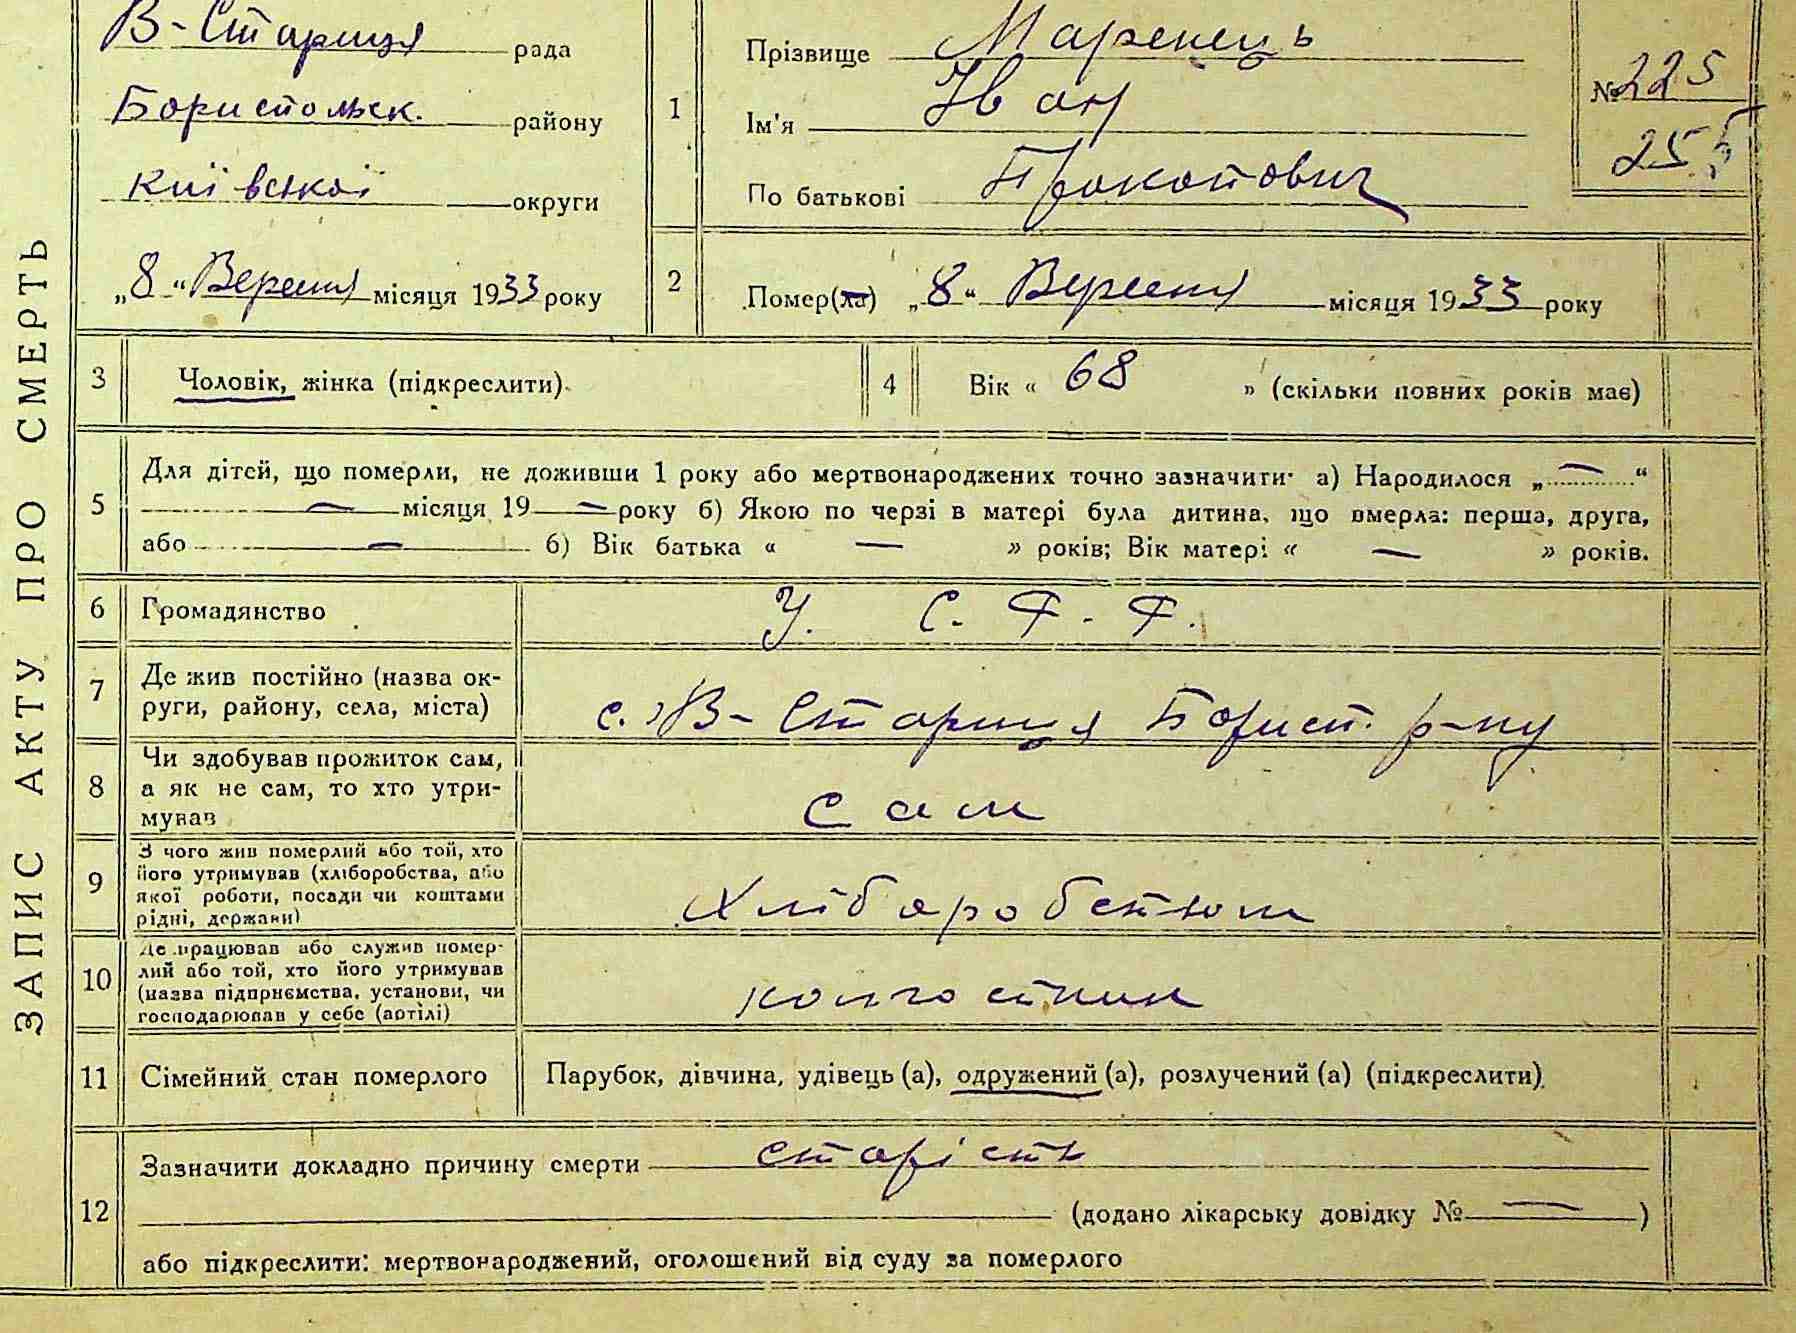 ЗАПИС АКТУ ПРО СМЕРТЬ
В-Стариця рада
Бориспольск. району
Київської округи
„8“ Вересня місяця 1933 року
1
Прізвище Маренець
Ім'я Іван
По батькові Прокопович
№ 225
255
2
Помер(ла) „8“ Вересня місяця 1933 року
3 Чоловік, жінка (підкреслити).
4 Вік « 68 » (скільки повних років має)
5
Для дітей, що померли, не доживши 1 року або мертвонароджених точно зазначити· а) Народилося „ — “
— місяця 19 — року б) Якою по черзі в матері була дитина, що вмерла: перша, друга,
або — б) Вік батька « — » років; Вік матері « — » років.
6 Громадянство У. С. Р. Р.
7 Де жив постійно (назва ок-
руги, району, села, міста) с. В-Стариця Борисп. р-ну
8 Чи здобував прожиток сам,
а як не сам, то хто утри-
мував сам
9 З чого жив померлий або той, хто
його утримував (хліборобства, або
якої роботи, посади чи коштами
рідні, держави) Хліборобством
10 Де працював або служив помер-
лий або той, хто його утримував
(назва підприємства, установи, чи
господарював у себе (артілі) колгоспник
11 Сімейний стан померлого Парубок, дівчина, удівець (а), одружений (а), розлучений (а) (підкреслити).
12
Зазначити докладно причину смерти старість
(додано лікарську довідку № — )
або підкреслити: мертвонароджений, оголошений від суду за померлого